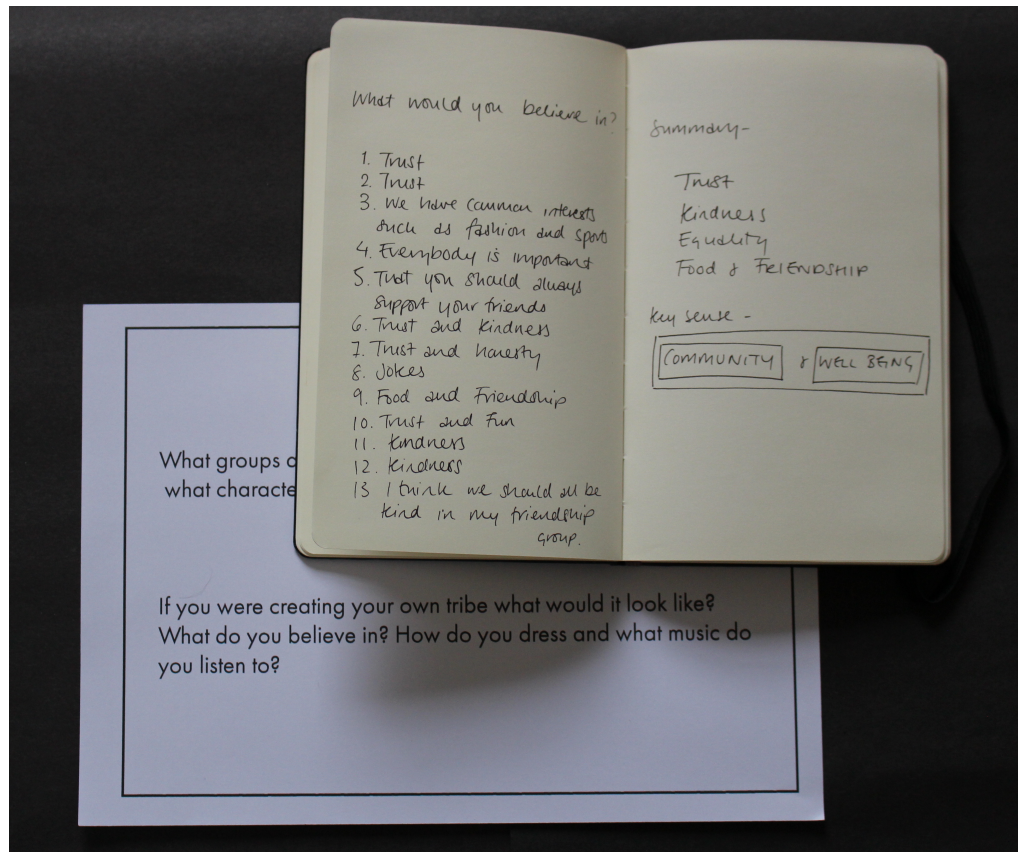 What would you believe in?
1. Trust
2. Trust
3. We have common interests
such as fashion and sports
4. Everybody is important
5. That you should always
support your friends
6. Trust and kindness
7. Trust and honesty
8. Jokes
9. Food and Friendship
10. Trust and Fun
11. kindness
12. kindness
13 I think we should all be
kind in my friendship
group.
Summary-
Trust
kindness
Equality
Food & FRIENDSHIP
key sense -
COMMUNITY & WELL BEING
What groups
what characte
If you were creating your own tribe what would it look like?
What do you believe in? How do you dress and what music do
you listen to?